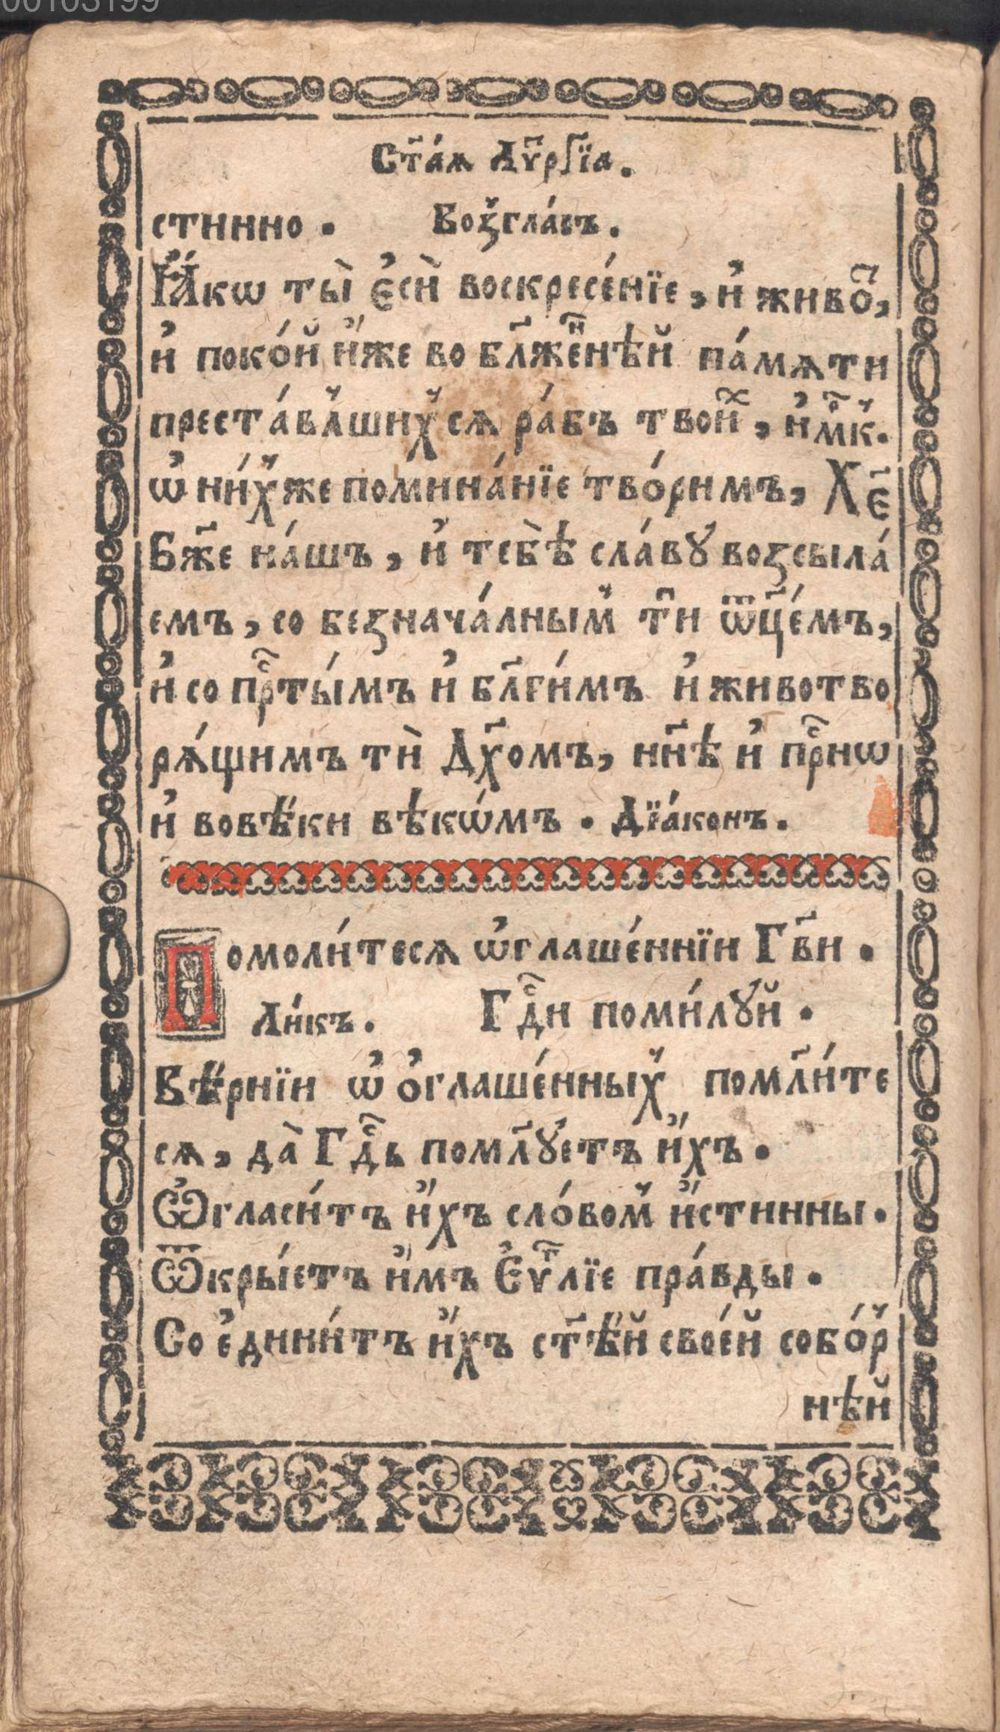 00103199
Ст҃а́ѧ Лѵрⷢ҇їа.
стинно. Воꙁгла́съ.
Ꙗ҆́кѡ ты̀ є҆сѝ воскресе́нїе, и҆ живо́тⷮ,
и҆ поко́й и҆́же во бл҃же́ннⷩѣй па́мѧти
преста́влⷧшихсѧ ра́бъ твоиⷯ, и҆м҃к.
ѡ҆ ни́хже помина́нїе тво́римъ, Хе҃
Бж҃е на́шъ, и҆ тебѣ̀ сла́вꙋ воꙁсыла́
емъ, со беꙁнача́лным ти҃ ѿц҃е́мъ,
и҆ со прⷭ҇ты́мъ и҆ бл҃ги́мъ и҆ животво
рѧ́щимъ тѝ Дх҃омъ, нн҃ѣ и҆ прⷭ҇нѡ
и҆ вовѣ́ки вѣкѡ́мъ. Дїа́конъ.
Помоли́тесѧ ѡ҆глаше́ннїи Гв҃и.
Ли́къ. Гдⷭ҇и поми́лꙋй.
Вѣ́рнїи ѡ҆ ѻ҆глаше́нных помл҃и́те
сѧ, да̀ Гдⷭ҇ь помл҃ꙋетъ и҆́хъ.
Ѡ҆гласи́тъ и҆́хъ сло́вом и҆́стинны.
Ѿкры́етъ и҆́мъ Є҆ѵ҃лїе пра́вды.
Со є҆дини́тъ и҆́хъ ст҃ѣ́й свое́й собо́р
нѣй